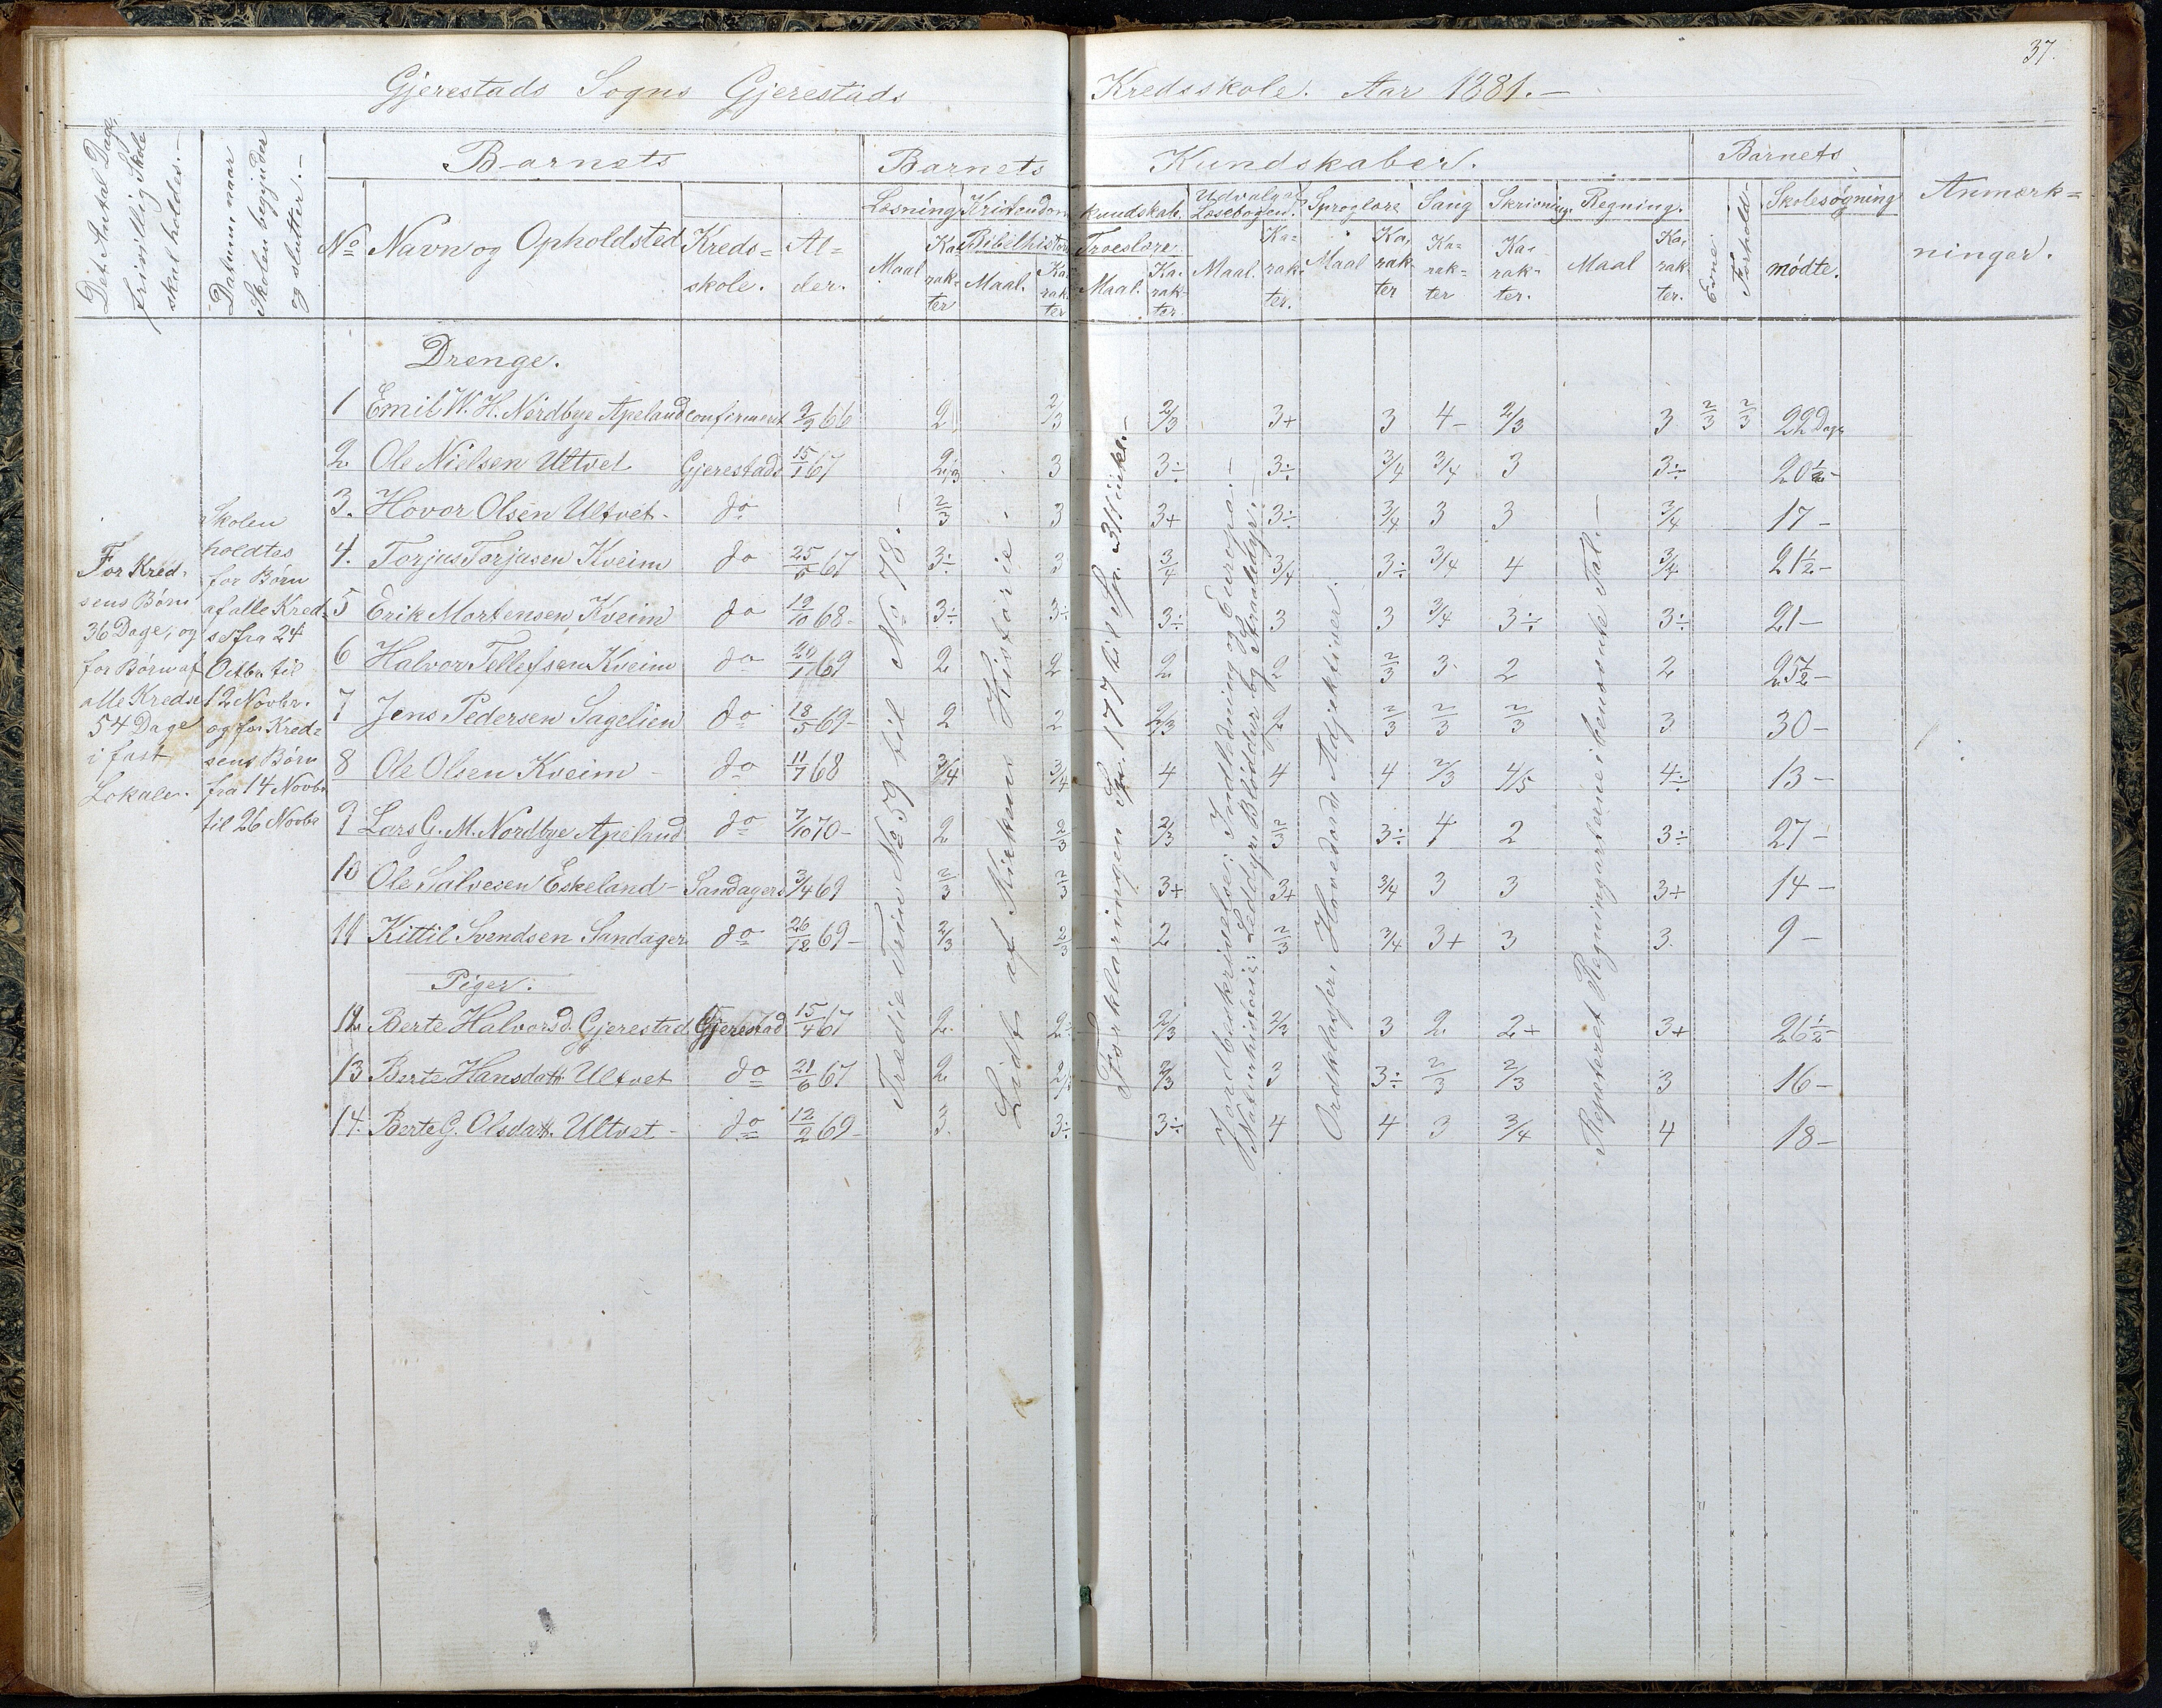 37.
Gjerestads Sogns Gjerestads Kredsskole. Aar 1881.-
Det Antal Dage, frivillig Skole skal holdes.-
Datum, naar Skolen begynder og slutter.-
Barnets
No Navn og Opholdsted Kreds=skole. Al=der.
Barnets Kundskaber.
Læsning Maal Karakter
Kristendomskundskab. Bibelhistorie Maal. Karakter Troeslære. Maal. Karakter.
Udvalg af Læsebogen. Maal. Ka=rak=ter.
Sproglære Maal Karakter
Sang Ka=rak=ter
Skrivning. Ka=rak=ter.
Regning. Maal Karakter.
Barnets
Evne. Forhold- Skolesøgning mødte.
Anmærk=ninger.
For Kred=
sens Børn
36 Dage, og
for Børn af
alle Kredse
54 Dage
i fast
Lokale.
Skolen
holdtes
for Børn
af alle Kred=
se fra 24
Octbr. til
12 Novbr.
og for Kred=
sens Børn
fra 14 Novbr
til 26 Novbr
Tredie Trin No 59 til No 78.-
Lidt af Kirkens Historie.
Forklaringen Sp. 177 til Sp. 311 inkl.-
Jordbeskrivelse: Indledning og Europa.-
Naturhistorie: Leddyr, Bløddyr og Straaledyr.-
Ordklasser, Hovedord Adjektiver.
Repeteret Regningarterne i benævnte Tal.-
Drenge.
1 Emil W. H. Nordbye Apeland confirmert 2/9 66 2 2/3 2/3 3+ 3 4- 2/3 3 2/3 2/3 22 Dage
2. Ole Nielsen Ultvet Gjerestads 15/1 67 2/3 3 3÷ 3÷ 3/4 3/4 3 3÷ 20½-
3. Hovor Olsen Ultvet- do 2/3 3 3+ 3÷ 3/4 3 3 3/4 17-
4. Torjus Torjusen Kveim do 67 3÷ 3 3/4 3/4 3÷ 3/4 4 3/4 21½-
5 Erik Mortensen Kveim do 19/10 68- 3÷ 3÷ 3÷ 3 3 3/4 3÷ 3÷ 21-
6 Halvor Tellefsen Kveim do 20/1 69 2 2 2 2 2/3 3 2 2 25½-
7 Jens Pedersen Sagelien do 18/5 69- 2 2 2/3 2 2/3 2/3 2/3 3 30-
8 Ole Olsen Kveim - do 11/7 68 3/4 3/4 4 4 4 2/3 4/5 4÷ 13-
9 Lars G. M. Nordbye Apeland do 7/10 70- 2 2/3 2/3 2/3 3÷ 4 2 3÷ 27-
10 Ole Salvesen Eskeland- Sandagers 3/4 69 2/3 2/3 3+ 3+ 3/4 3 3 3+ 14-
11 Kittil Svendsen Sandager do 26/12 69- 2/3 2/3 2 2/3 3/4 3+ 3 3. 9-
Piger.
12. Berte Halvorsd. Gjerestad Gjerestad 15/4 67 2. 2÷ 2/3 2/3 3 2. 2+ 3+ 26½-
13 Berte Hansdatt. Ultvet do 21/6 67 2 2/3 2/3 3 3÷ 2/3 2/3 3 16-
14. Berte G. Olsdatt. Ultvet- do 12/2 69- 3. 3÷ 3÷ 4 4 3 3/4 4 18-